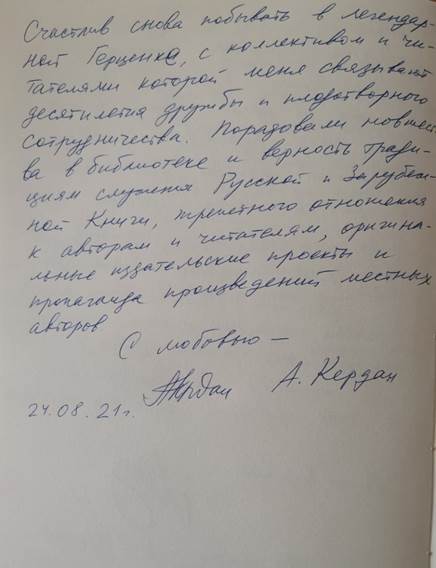 Счастлив снова побывать в легендар-
ной Герценке, с коллективом и чи-
тателями которой меня связывают
десятилетия дружбы и плодотворного
сотрудничества. Порадовали новшест
ва в библиотеке и верность тради-
циям служения Русской и Зарубеж-
ной Книги, трепетного отношения
к авторам и читателям, оригина-
льные издательские проекты и
пропаганда произведений местных
авторов
С любовью —
А. Кердан
24.08.21г.